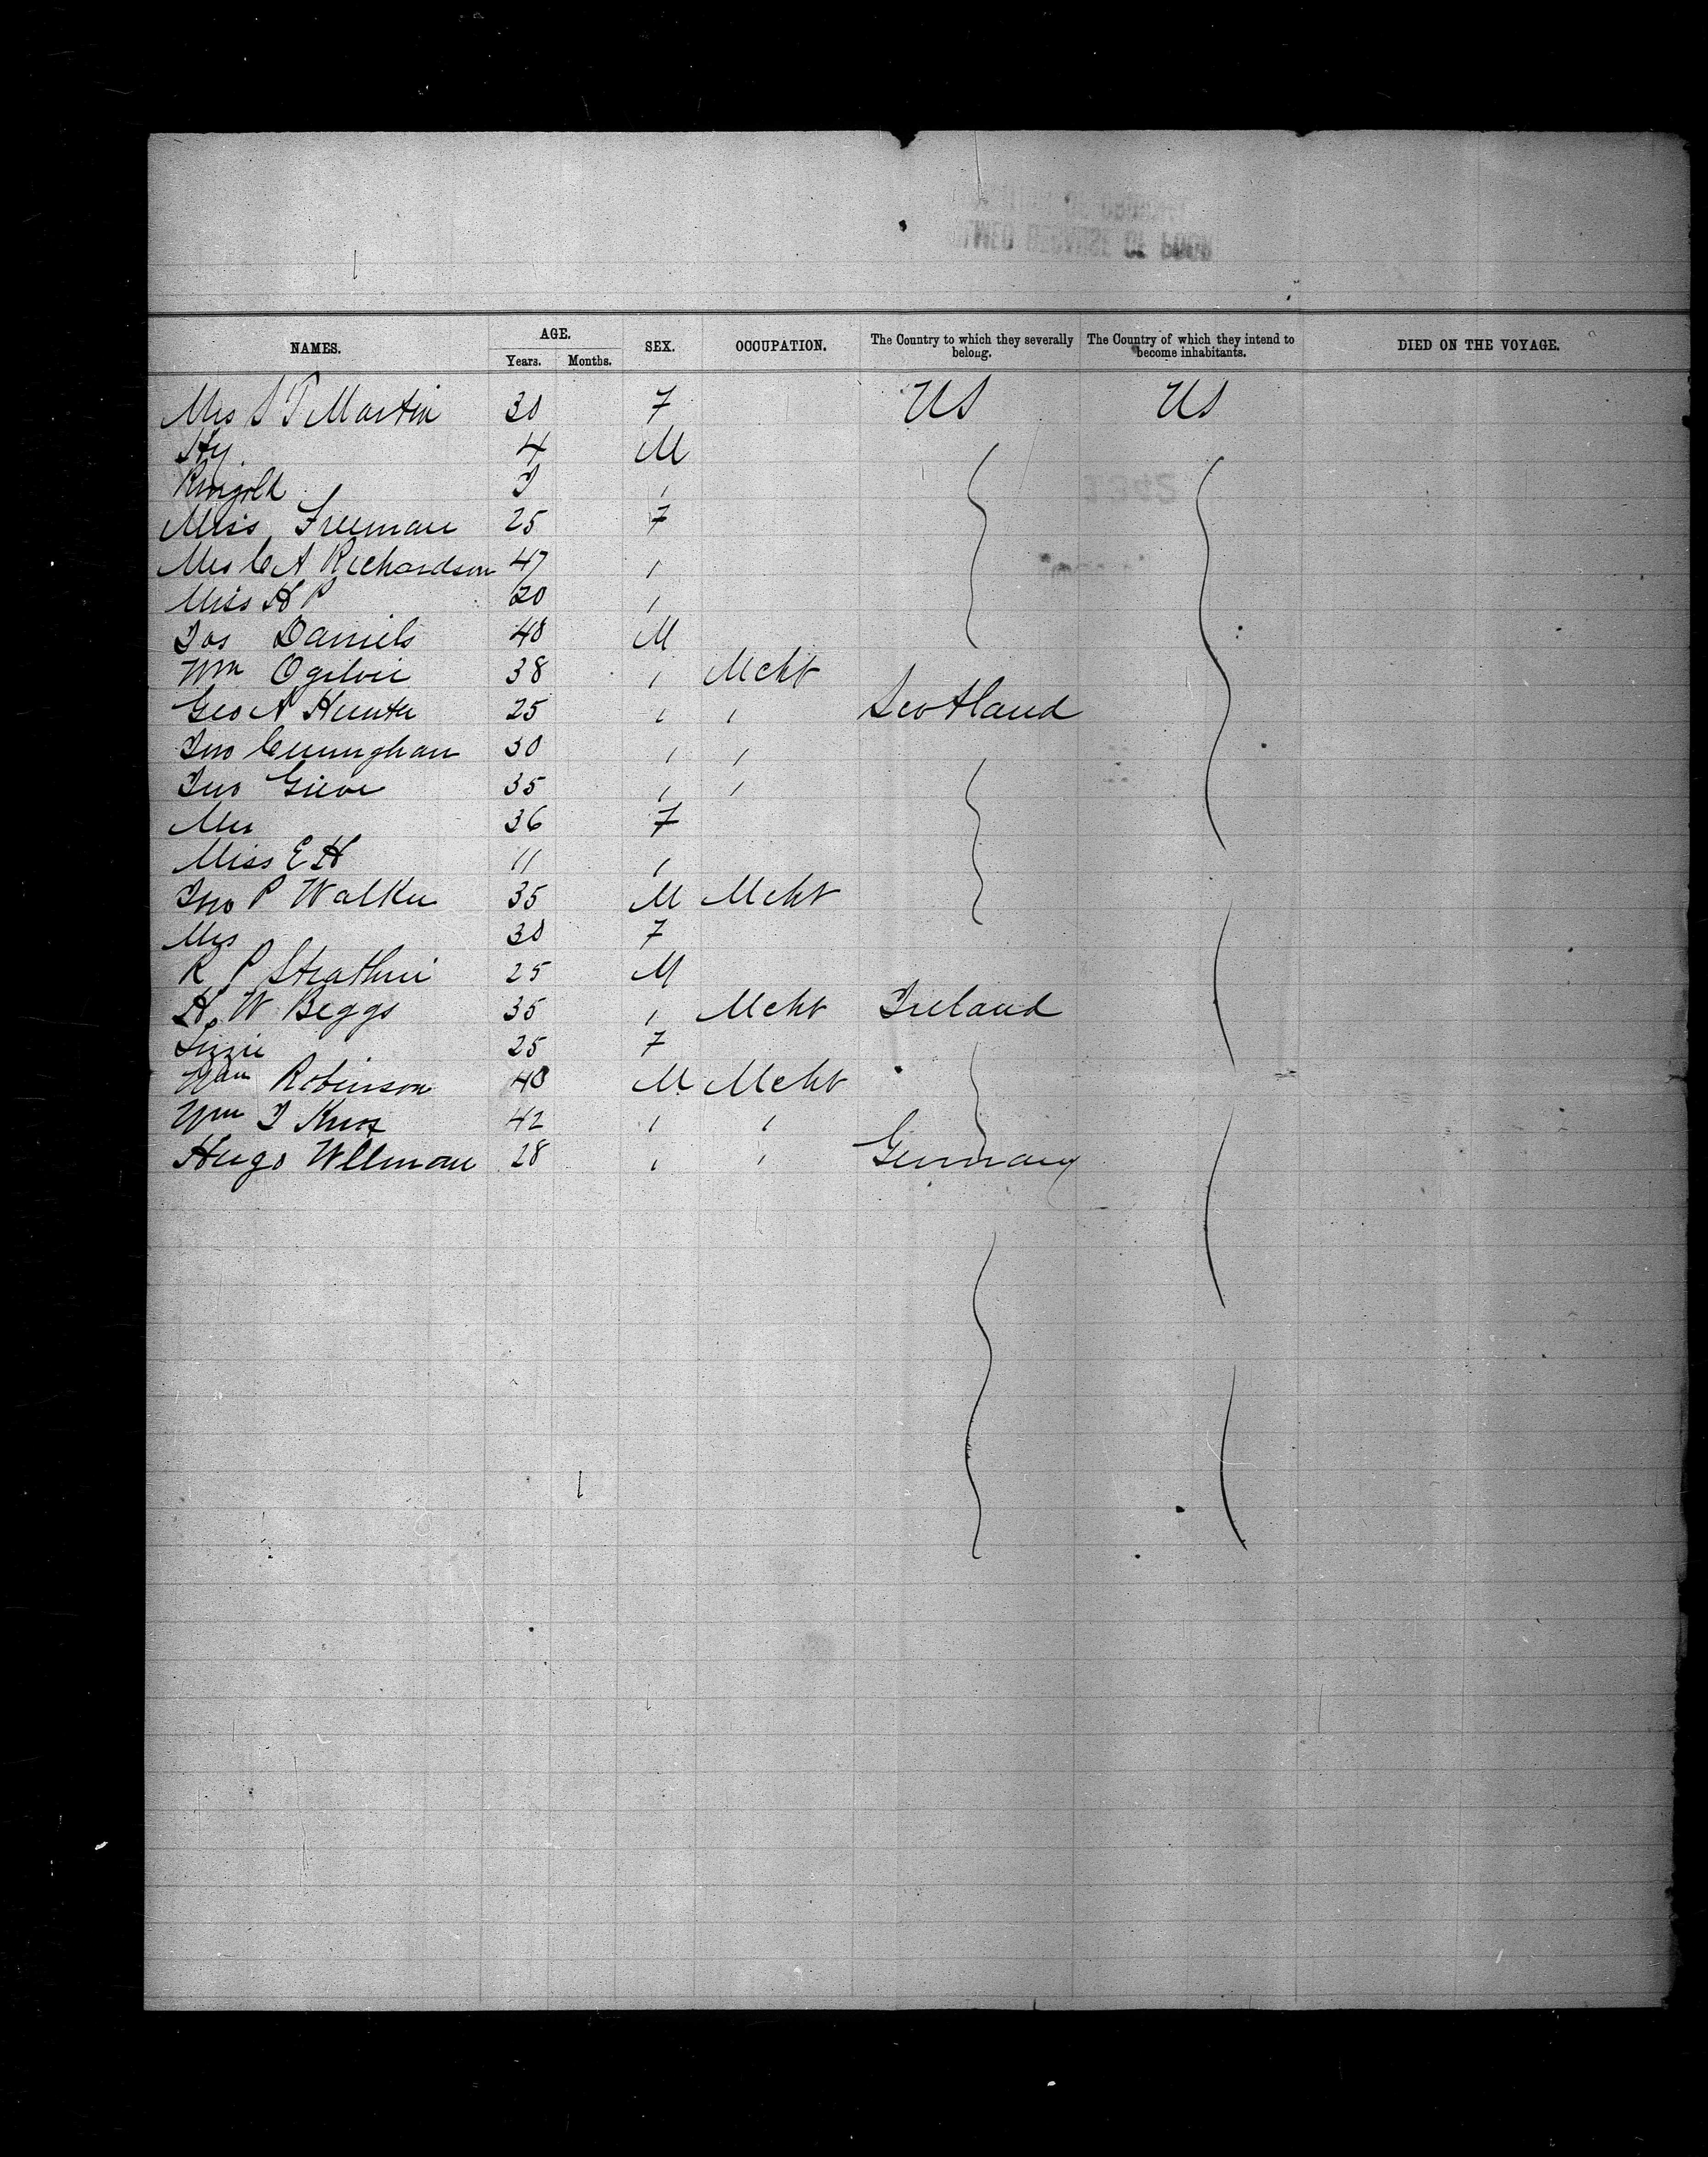 NAMES. AGE. Years. Months. SEX. OCCUPATION. The Country to which they severally belong. The Country of which they intend to become inhabitants. DIED ON THE VOYAGE.
Mrs S T Martin 30 F US US
Hy 4 M
Ringold
Miss Freeman 25 F
Mrs C A Richardson 47 "
Miss H P 20 "
Jos Daniels 48 M
Wm Ogilvie 38 " Mcht
Geo A Hunter 25 " " Scotland
Jno Cunnghan 30 " "
Jno Grieve 35 " "
Mrs 36 F
Miss E H 11 "
Jno P Walker 35 M Mcht
Mrs 30 F
R P Strathni 25 M
H W Beggs 35 " Mcht Ireland
Lizzie 25 F
Wam Robinson 40 M Mcht
Wm J Knox 42 " "
Hugo Wllman 28 " " Germany